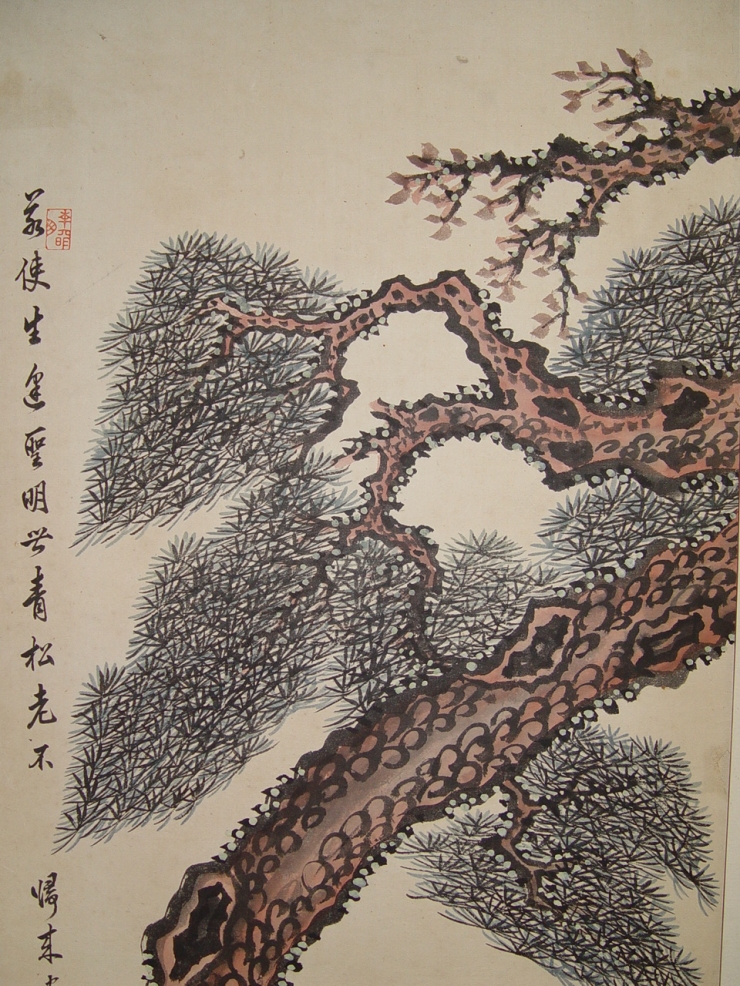 若使生逢聖明世青松老不
歸來